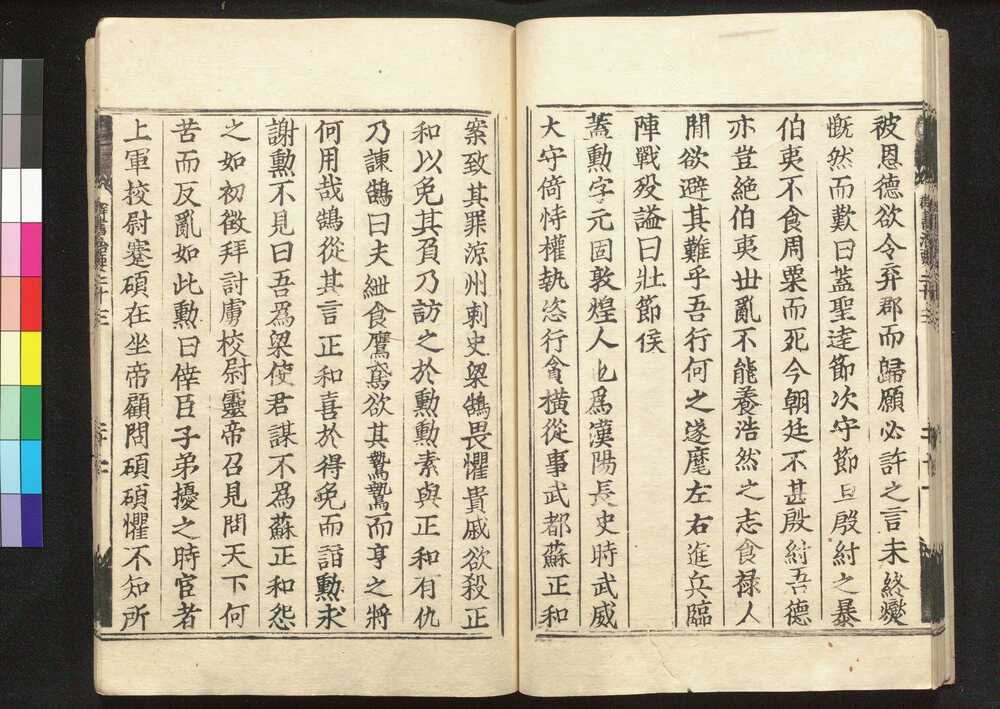 被恩德欲令弃郡而歸願必許之言未終爕
慨然而歎曰蓋聖達節次守節且殷紂之暴
伯夷不食周粟而死今朝廷不甚殷紂吾德
亦豈絶伯夷丗亂不能養浩然之志食禄人
間欲避其難乎吾行何之遂麾左右進兵臨
陣戰殁謚曰壯節侯
蓋勲字元固敦煌人也爲漢陽長史時武威
大守倚恃權執恣行貪橫從事武都蘇正和
案致其罪涼州刺史梁鵠畏懼貴戚欲殺正
和以免其負乃訪之於勲勲素與正和有仇
乃諫鵠曰夫紲食鷹鳶欲其鷙鷙而亨之將
何用哉鵠從其言正和喜於得免而詣勲求
謝勲不見曰吾爲梁使君謀不爲蘇正和怨
之如初徵拜討虜校尉靈帝召見問天下何
苦而反亂如此勲曰倖臣子弟擾之時宦者
上軍挍尉蹇碩在坐帝顧問碩碩懼不知所
群書治要二十三